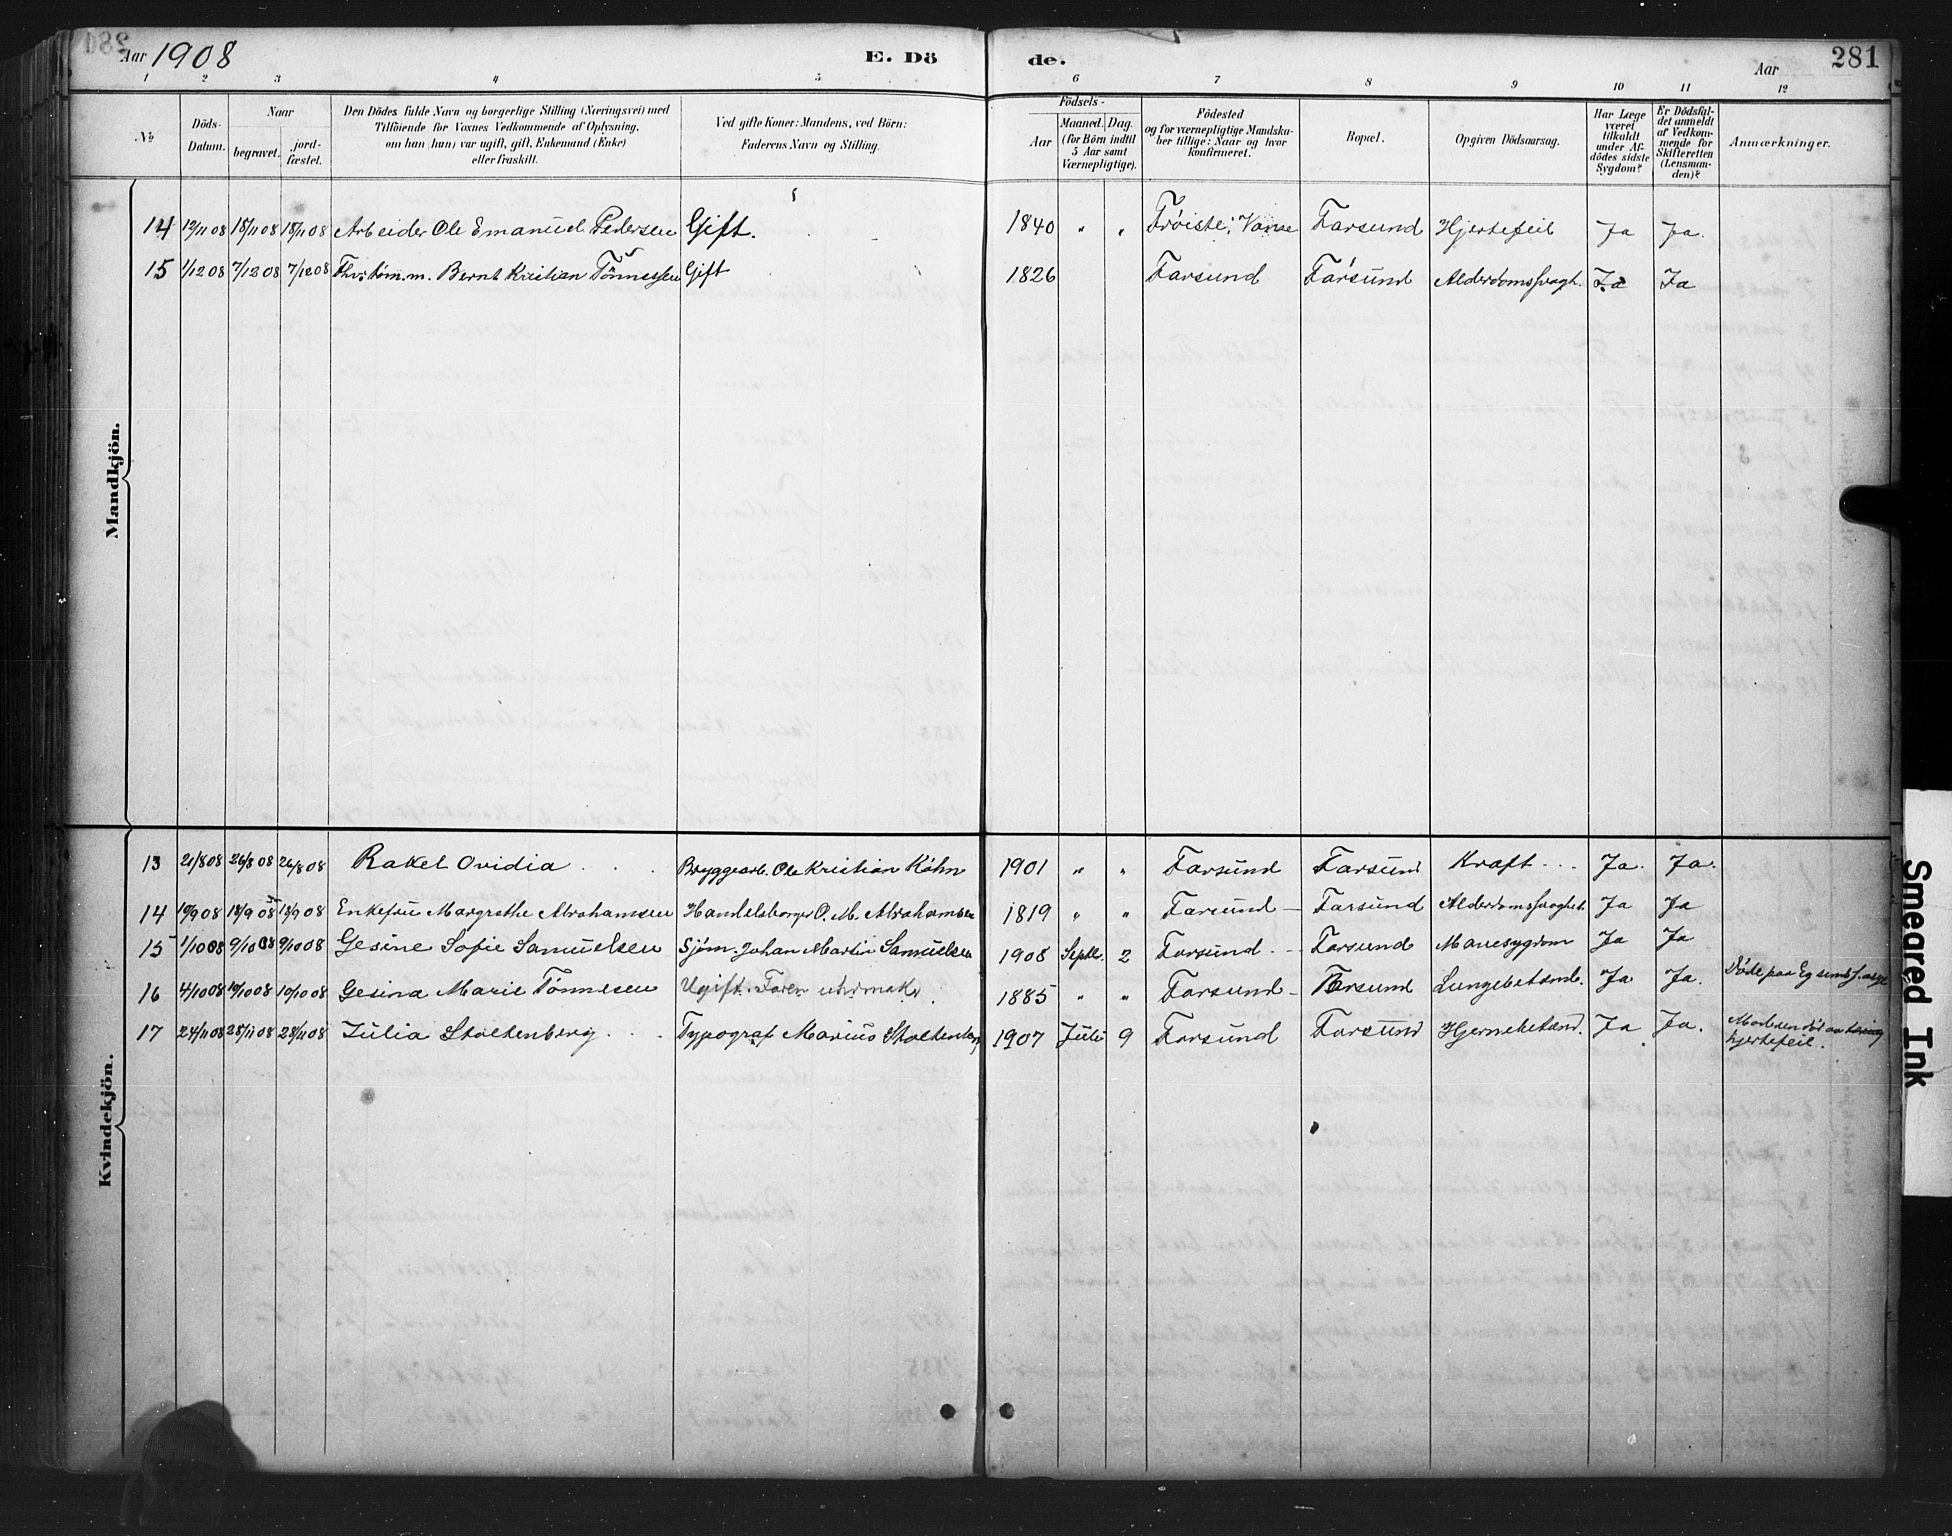 Aar 1908
E. Dö
de.
Aar
281
1 2 3 4 5 6 7 8 9 10 11 12
No
Döds-Datum.
Naar
begravet.
jord-fæstet.
Den Dödes fulde Navn og borgerlige Stilling (Næringsvei) med
Tilföiende for Voxnes Vedkommende af Oplysning,
om han (hun) var ugift, gift, Enkemand (Enke)
eller fraskilt.
Ved gifte Koner: Mandens, ved Börn:
Faderens Navn og Stilling.
Födsels-
Aar
Maaned. Dag.
(for Börn indtil
5 Aar samt
Værnepligtige).
Födested
og for værnepligtige Mandska-
ber tillige: Naar og hvor
konfirmeret.
Bopæl.
Opgiven Dödsaarsag.
Har Læge
været
tilkaldt
under Af-
dödes sidste
Sygdom?
Er Dödsfal-
det anmeldt
af Vedkom-
mende for
Skifteretten
(Lensman-
den)?
Anmærkninger.
Mandkjön.
14 12/11 08 18/11 08 18/11 08 Arbeider Ole Emanuel Pedersen Gift. 1840 " " Frøiste, Vanse Farsund Hjertefeil Ja Ja.
15 1/12 08 7/12 08 7/12 08 Fhv. Køm.m. Bernt Kristian Tönnessen Gift 1826 Farsund Farsund Alderdomssvagh. Ja Ja
Kvindekjön.
13 21/8 08 26/8 08 26/8 08 Rakel Ovidia Bryggearb. Ole Kristian Køhn 1901 " " Farsund Farsund Kræft Ja. Ja.
14 12/9 08 18/9 08 Enkefru Margrethe Abrahamsen Handelsborger O. M. Abrahamsen 1819 " " Farsund Farsund Alderdomssvaghet Ja Ja
15 1/10 08 9/10 08 9/10 08 Gesine Sofie Samuelsen Sjøm. Johan Martin Samuelsen 1908 Septb. 2 Farsund Farsund Mavesygdom Ja Ja
16 4/10 08 10/10 08 10/10 08 Gesina Marie Tönnesen Ugift. Faren uhrmak. 1885 " " Farsund Farsund Lungebetænd. Ja Ja. Døde paa Eg sindss. asyl
17 24/11 08 28/11 08 28/11 08 Julia Stoltenberg Typograf Marius Stoltenberg 1907 Juli 9 Farsund Farsund Hjernebetænd. Ja Ja. Moderen død av
hjertefeil.
Smeared Ink